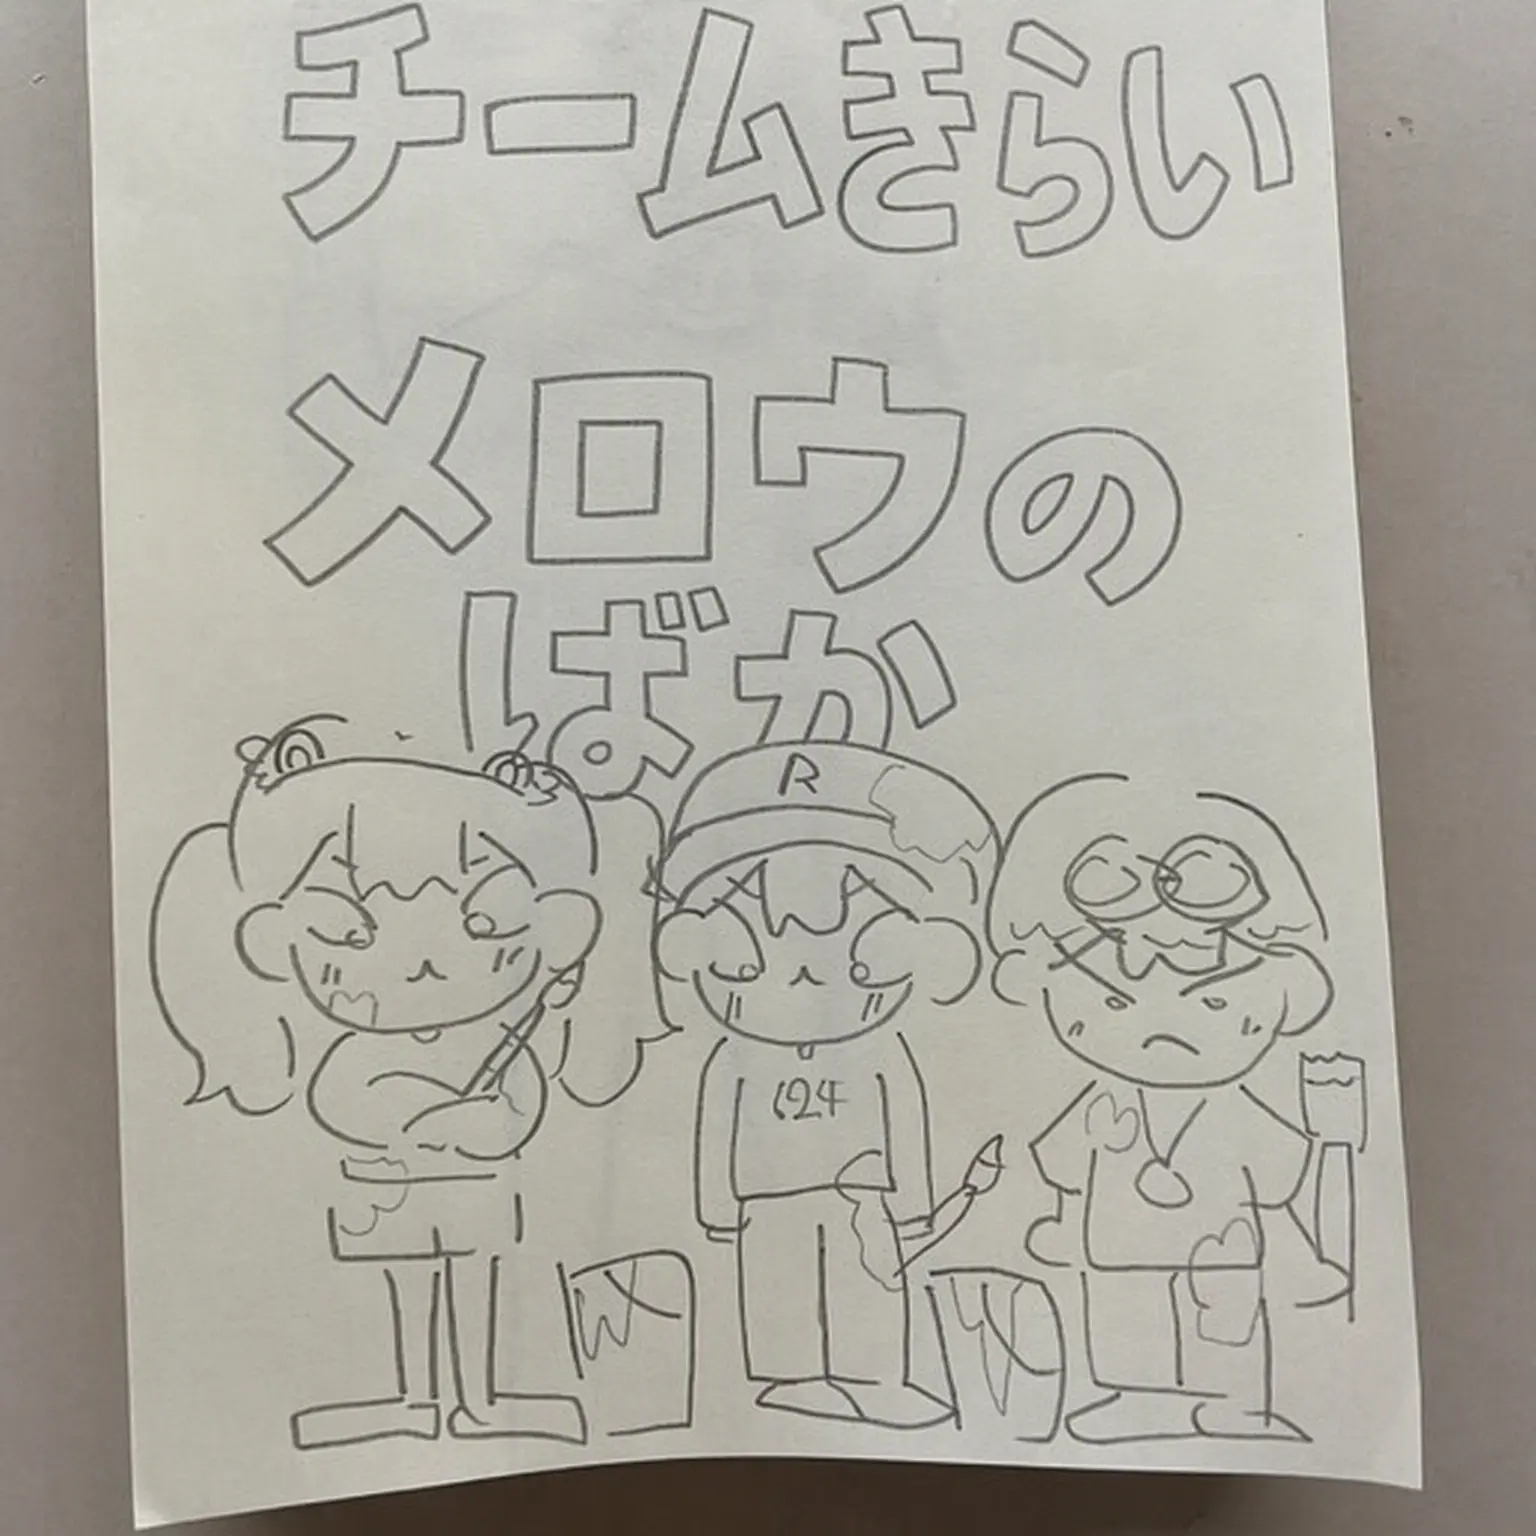 チームきらい
メロウの
ばか
R
624